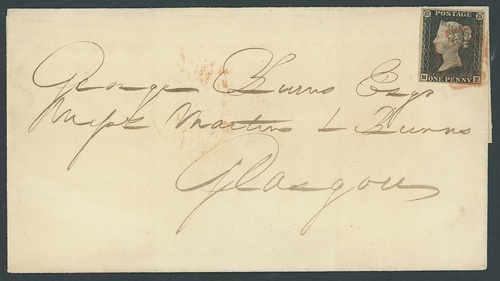 POSTAGE
ONE PENNY
George Burns Esqr
Messrs Martins & Burns
Glasgow